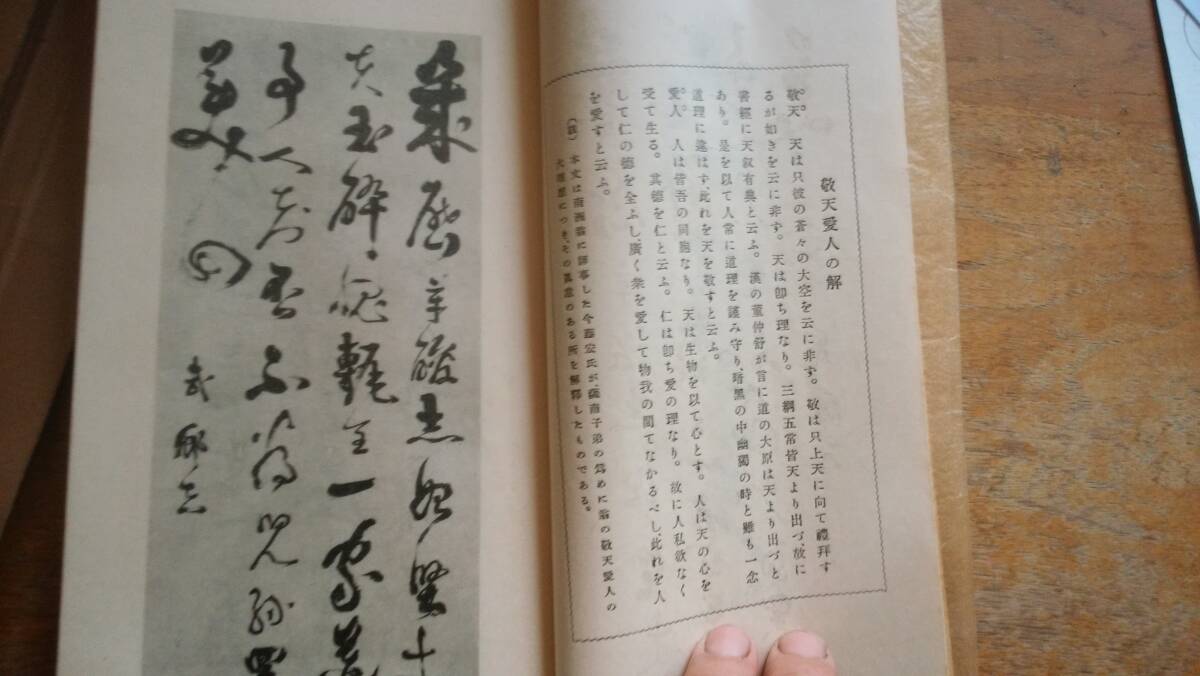 敬天愛人の解
敬天。天は只彼の蒼々の大空を云に非ず。敬は只上天に向て禮拜す
るが如きを云に非ず。天は卽ち理なり。三綱五常皆天より出づ、故に
書經に天叙有典と云ふ。漢の董仲舒が言に道の大原は天より出づと
あり。是を以て人常に道理を謹み守り、暗黑の中幽獨の時と雖も一念
道理に違はず、此れを天を敬すと云ふ。
愛人。人は皆吾の同胞なり。天は生物を以て心とす。人は天の心を
受て生る。其德を仁と云ふ。仁は卽ち愛の理なり。故に人私欲なく
して仁の德を全ふし、廣く衆を愛して物我の間てなかるべし、此れを人
を愛すと云ふ。
本文は南洲翁に師事した今藤宏氏が、薩南子弟の爲めに翁の敬天愛人の
大理想につき、その眞意のある所を解釋したものである。
幾歷辛酸志始堅十
丈夫玉碎愧甎全一家
事人知否不爲兒孫買
美